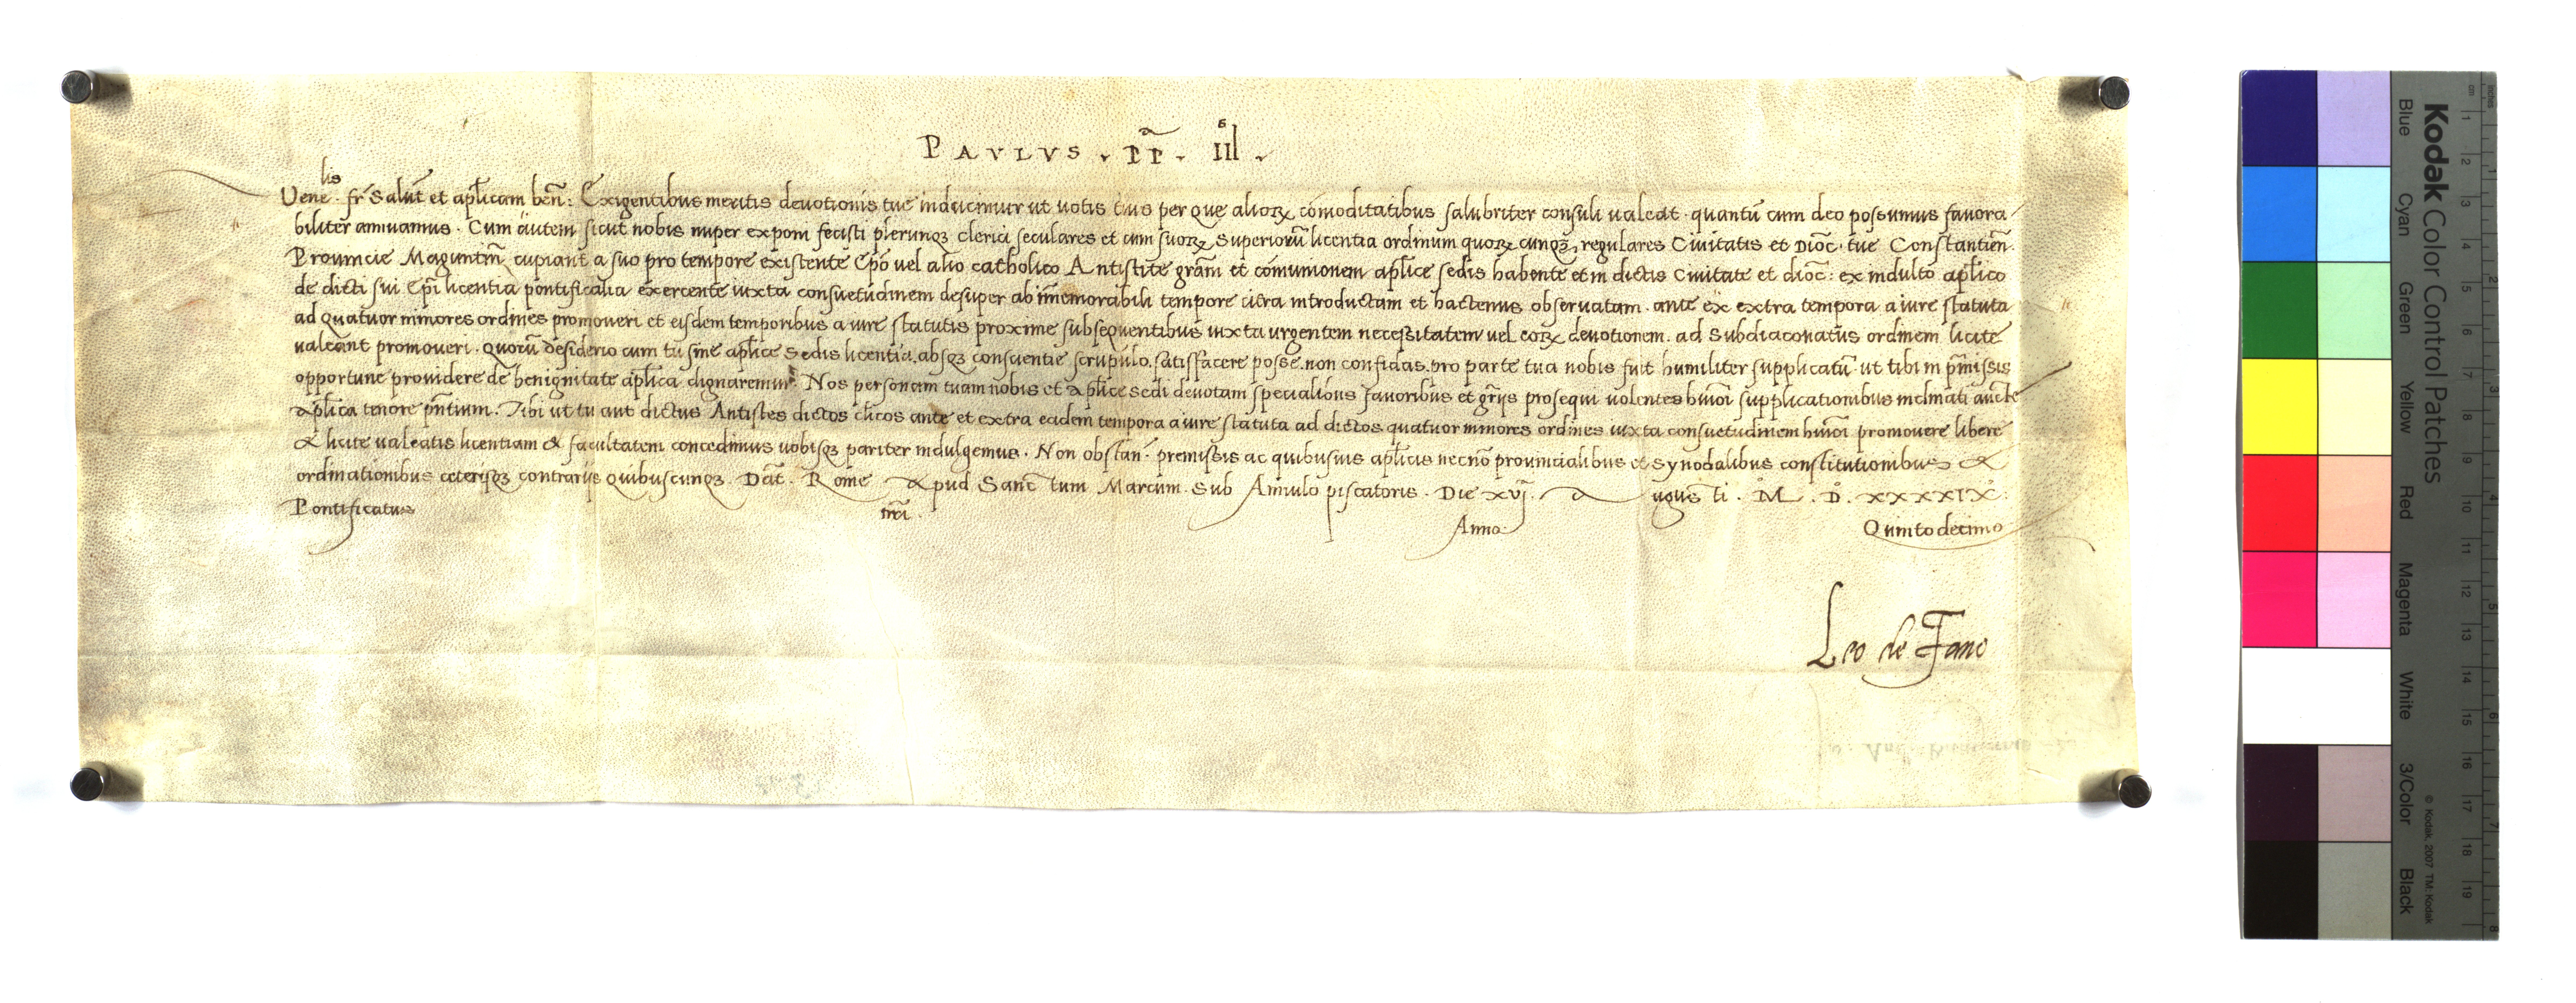 PAVLVS . PP̄ . III .
Venelis. fr̄ Salut̄ et aplicam ben̄: Exigentibus meritis devotionis tue inducimur ut votis tuis per que alioꝝ cōmoditatibus salubriter consuli valeat . quantū cum deo possumus favora-
biliter annuamus . Cum autem sicut nobis nuper exponi fecisti plerunqꝫ clerici seculares et cum suoꝝ Superiorū licentia ordinum quoꝝcunqꝫ regulares Civitatis et Dioc̄ . tue Constantien̄ .
Provincie Maguntin̄ cupiant a suo pro tempore existente Epō vel alio catholico Antistite grām et cōmunionem aplice sedis habente et in dictis Civitate et dioc̄ : ex indulto aplico
de dicti sui Epī licentia pontificalia exercente iuxta consuetudinem desuper ab īmemorabili tempore citra introductam et hactenus observatam . ante ex extra tempora a iure statuta
ad quatuor minores ordines promoveri et eisdem temporibus a iure statutis proxime subsequentibus iuxta urgentem necessitatem vel eoꝝ devotionem . ad Subdiaconatus ordinem licite
valeant promoveri . quorū desiderio cum tu sine aplice Sedis licentia . absqꝫ conscientie scrupulo . satisfacere posse . non confidas . pro parte tua nobis fuit humiliter supplicatū . ut tibi in p̄missis
opportune providere de benignitate aplica dignaremur . Nos personam tuam nobis et aplice sedi devotam specialibus favoribus et gr̄ijs prosequi volentes hmōi supplicationibus inclinati auct̄e
aplica tenore pn̄tium . Tibi ut tu aut dictus Antistes dictos clicos ante et extra eadem tempora a iure statuta ad dictos quatuor minores ordines iuxta consuetudinem hmōi promovere libere
& licite valeatis licentiam & facultatem concedimus vobisqꝫ pariter indulgemus . Non obstan̄ . premissis ac quibusvis aplicis necnō provincialibus et synodalibus constitutionibus &
ordinationibus ceterisqꝫ contrarijs quibuscunqꝫ . Dat̄ . Rome apud Sanctum Marcum . Sub Annulo piscatoris . Die xvj . Augusti . M . D . XXXXIX .
Pontificatus nr̄i . Anno Quintodecimo
Leo de Fano
Kodak Color Control Patches
Blue Cyan Green Yellow Red Magenta White 3/Color Black
© Kodak, 2007 TM: Kodak
cm 1 2 3 4 5 6 7 8 9 10 11 12 13 14 15 16 17 18 19
Inches 1 2 3 4 5 6 7 8